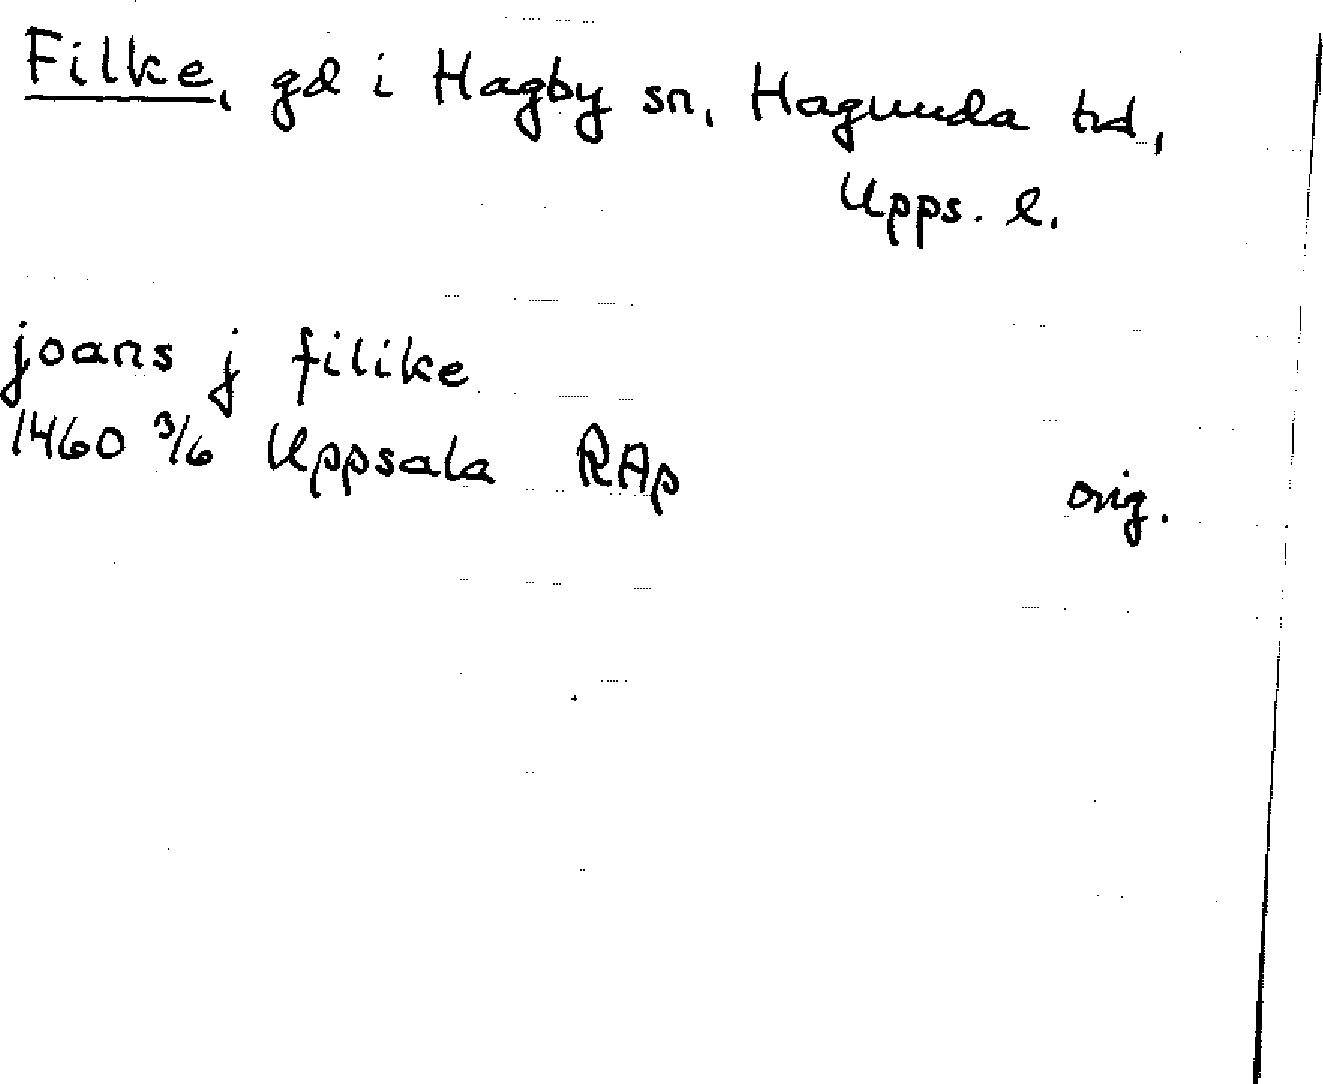 Filke, gd i Hagby sn, Hagunda hd,
Upps. l.
joans j filike
1460 3/6 Uppsala RAp orig.